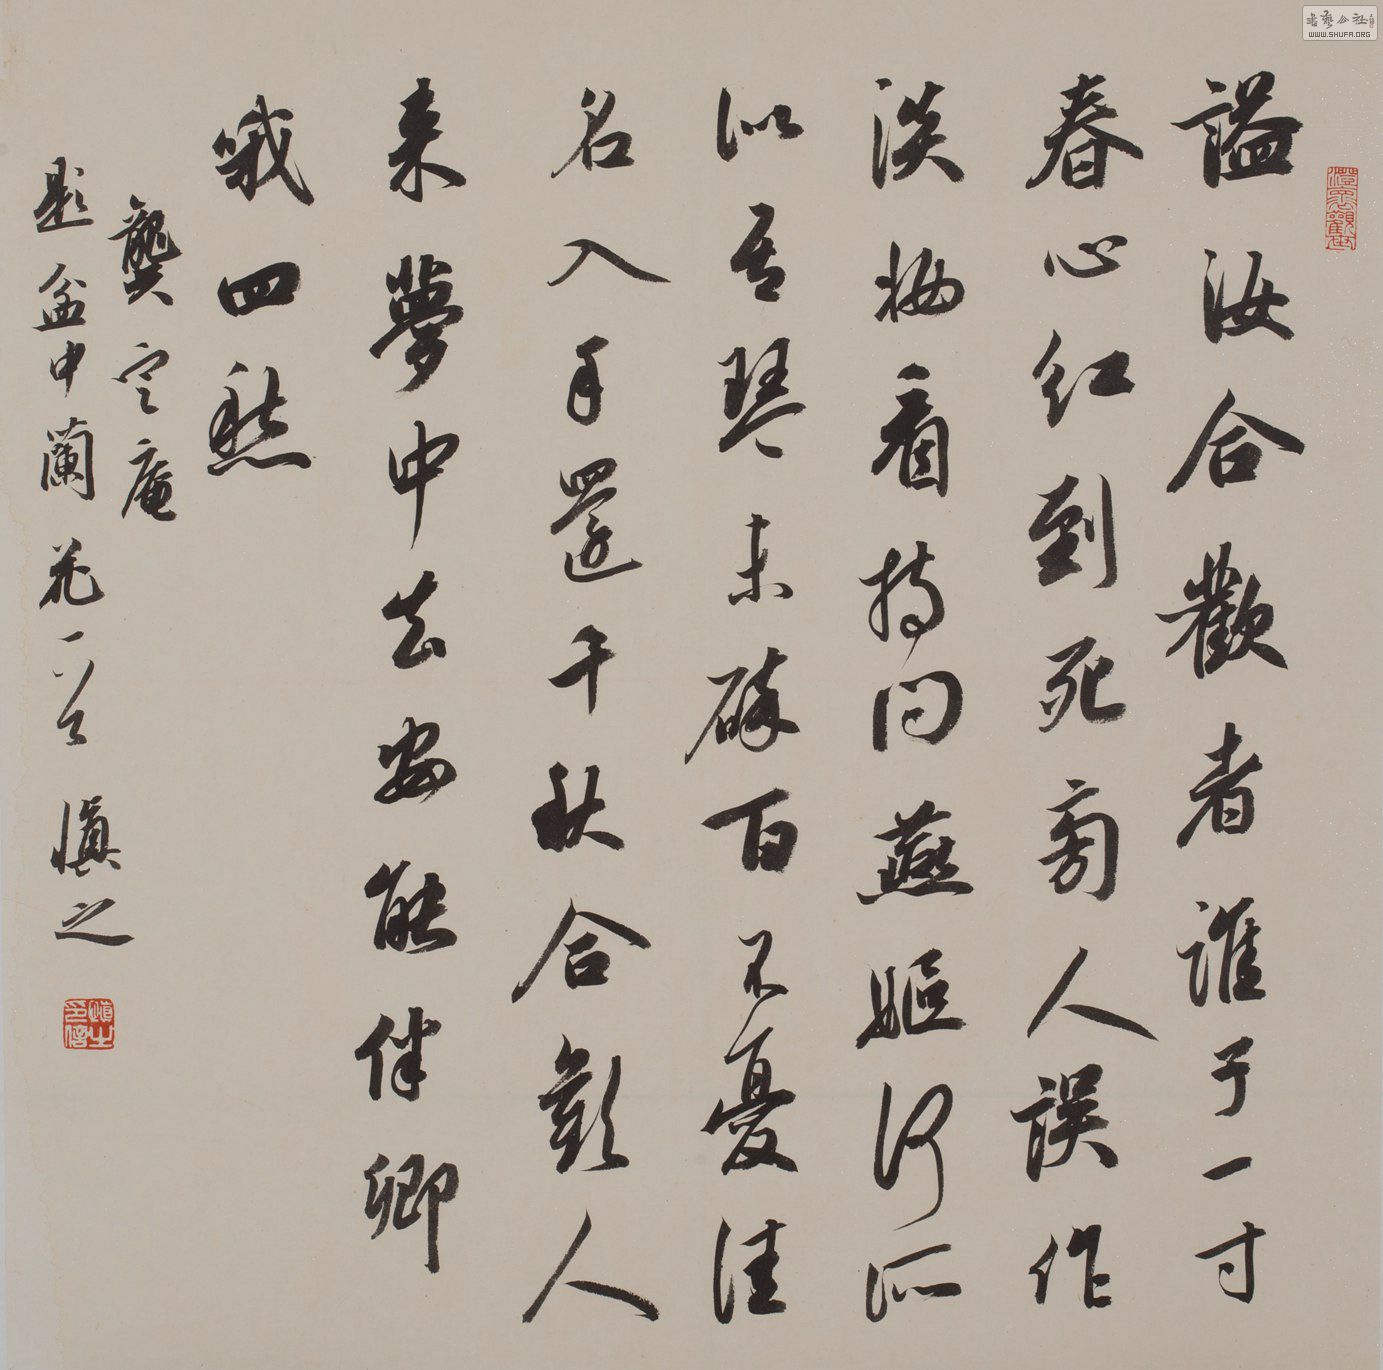 謚汝合歡者誰予一寸
春心紅到死旁人誤作
淡妝看持问燕姬何所
似吾琴未碎百不憂佳
名入手還千秋合歡人
来夢中去安能伴卿
哦四愁
龔定庵
題盆中蘭花一首 慎之
慎之印信
書藝公社
WWW.SHUFA.ORG